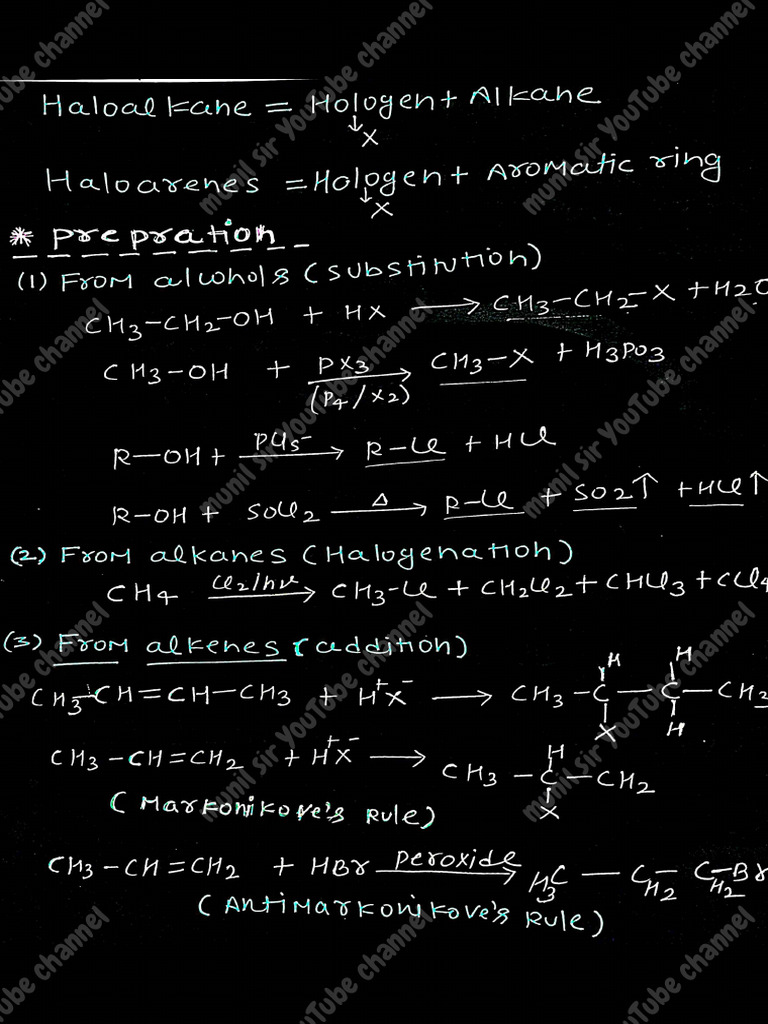 Haloalkane = Hologen + Alkane
↓
X
Haloarenes = Hologen + Aromatic ring
↓
X
* prepration
(1) From alcohols (substitution)
CH3-CH2-OH + HX ⟶ CH3-CH2-X + H2O
CH3-OH + PX3 ⟶ CH3-X + H3PO3
(P4/X2)
R-OH + PCl5 ⟶ R-Cl + HCl
R-OH + SOCl2 ⟶Δ R-Cl + SO2↑ + HCl↑
(2) From alkanes (Halogenation)
CH4 Cl2/hν ⟶ CH3-Cl + CH2Cl2 + CHCl3 + CCl4
(3) From alkenes (addition)
H H
CH3-CH=CH-CH3 + H⁺X⁻ ⟶ CH3-C-C-CH2
X H
H
CH3-CH=CH2 + H⁺X⁻ ⟶ CH3-C-CH2
X
(Markonikove's Rule)
CH3-CH=CH2 + HBr peroxide ⟶ H3C-CH2-CH2-Br
(Antimarkonikove's Rule)
munil sir YouTube channel